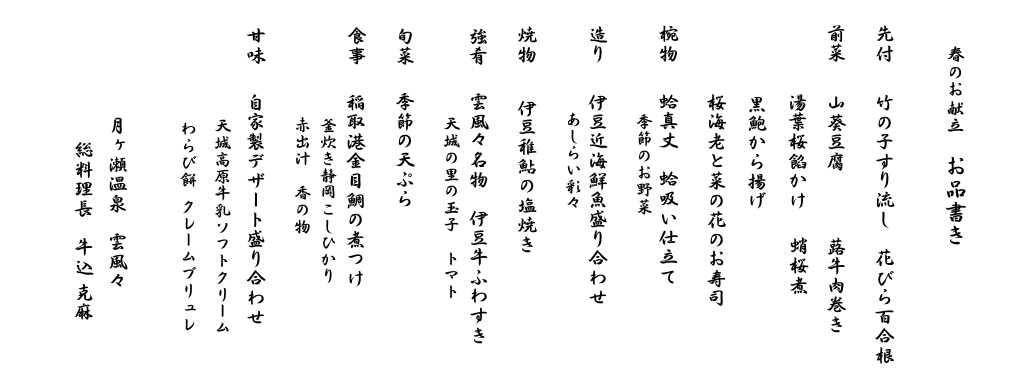 春のお献立　お品書き
先付　竹の子すり流し　花びら百合根
前菜　山葵豆腐　蕗牛肉巻き
湯葉桜餡かけ　蛸桜煮
黒鮑から揚げ
桜海老と菜の花のお寿司
椀物　蛤真丈　蛤吸い仕立て
季節のお野菜
造り　伊豆近海鮮魚盛り合わせ
あしらい彩々
焼物　伊豆稚鮎の塩焼き
強肴　雲風々名物　伊豆牛ふわすき
天城の里の玉子　トマト
旬菜　季節の天ぷら
食事　稲取港金目鯛の煮つけ
釜炊き静岡こしひかり
赤出汁　香の物
甘味　自家製デザート盛り合わせ
天城高原牛乳ソフトクリーム
わらび餅　クレームブリュレ
月ヶ瀬温泉　雲風々
総料理長　牛込克麻